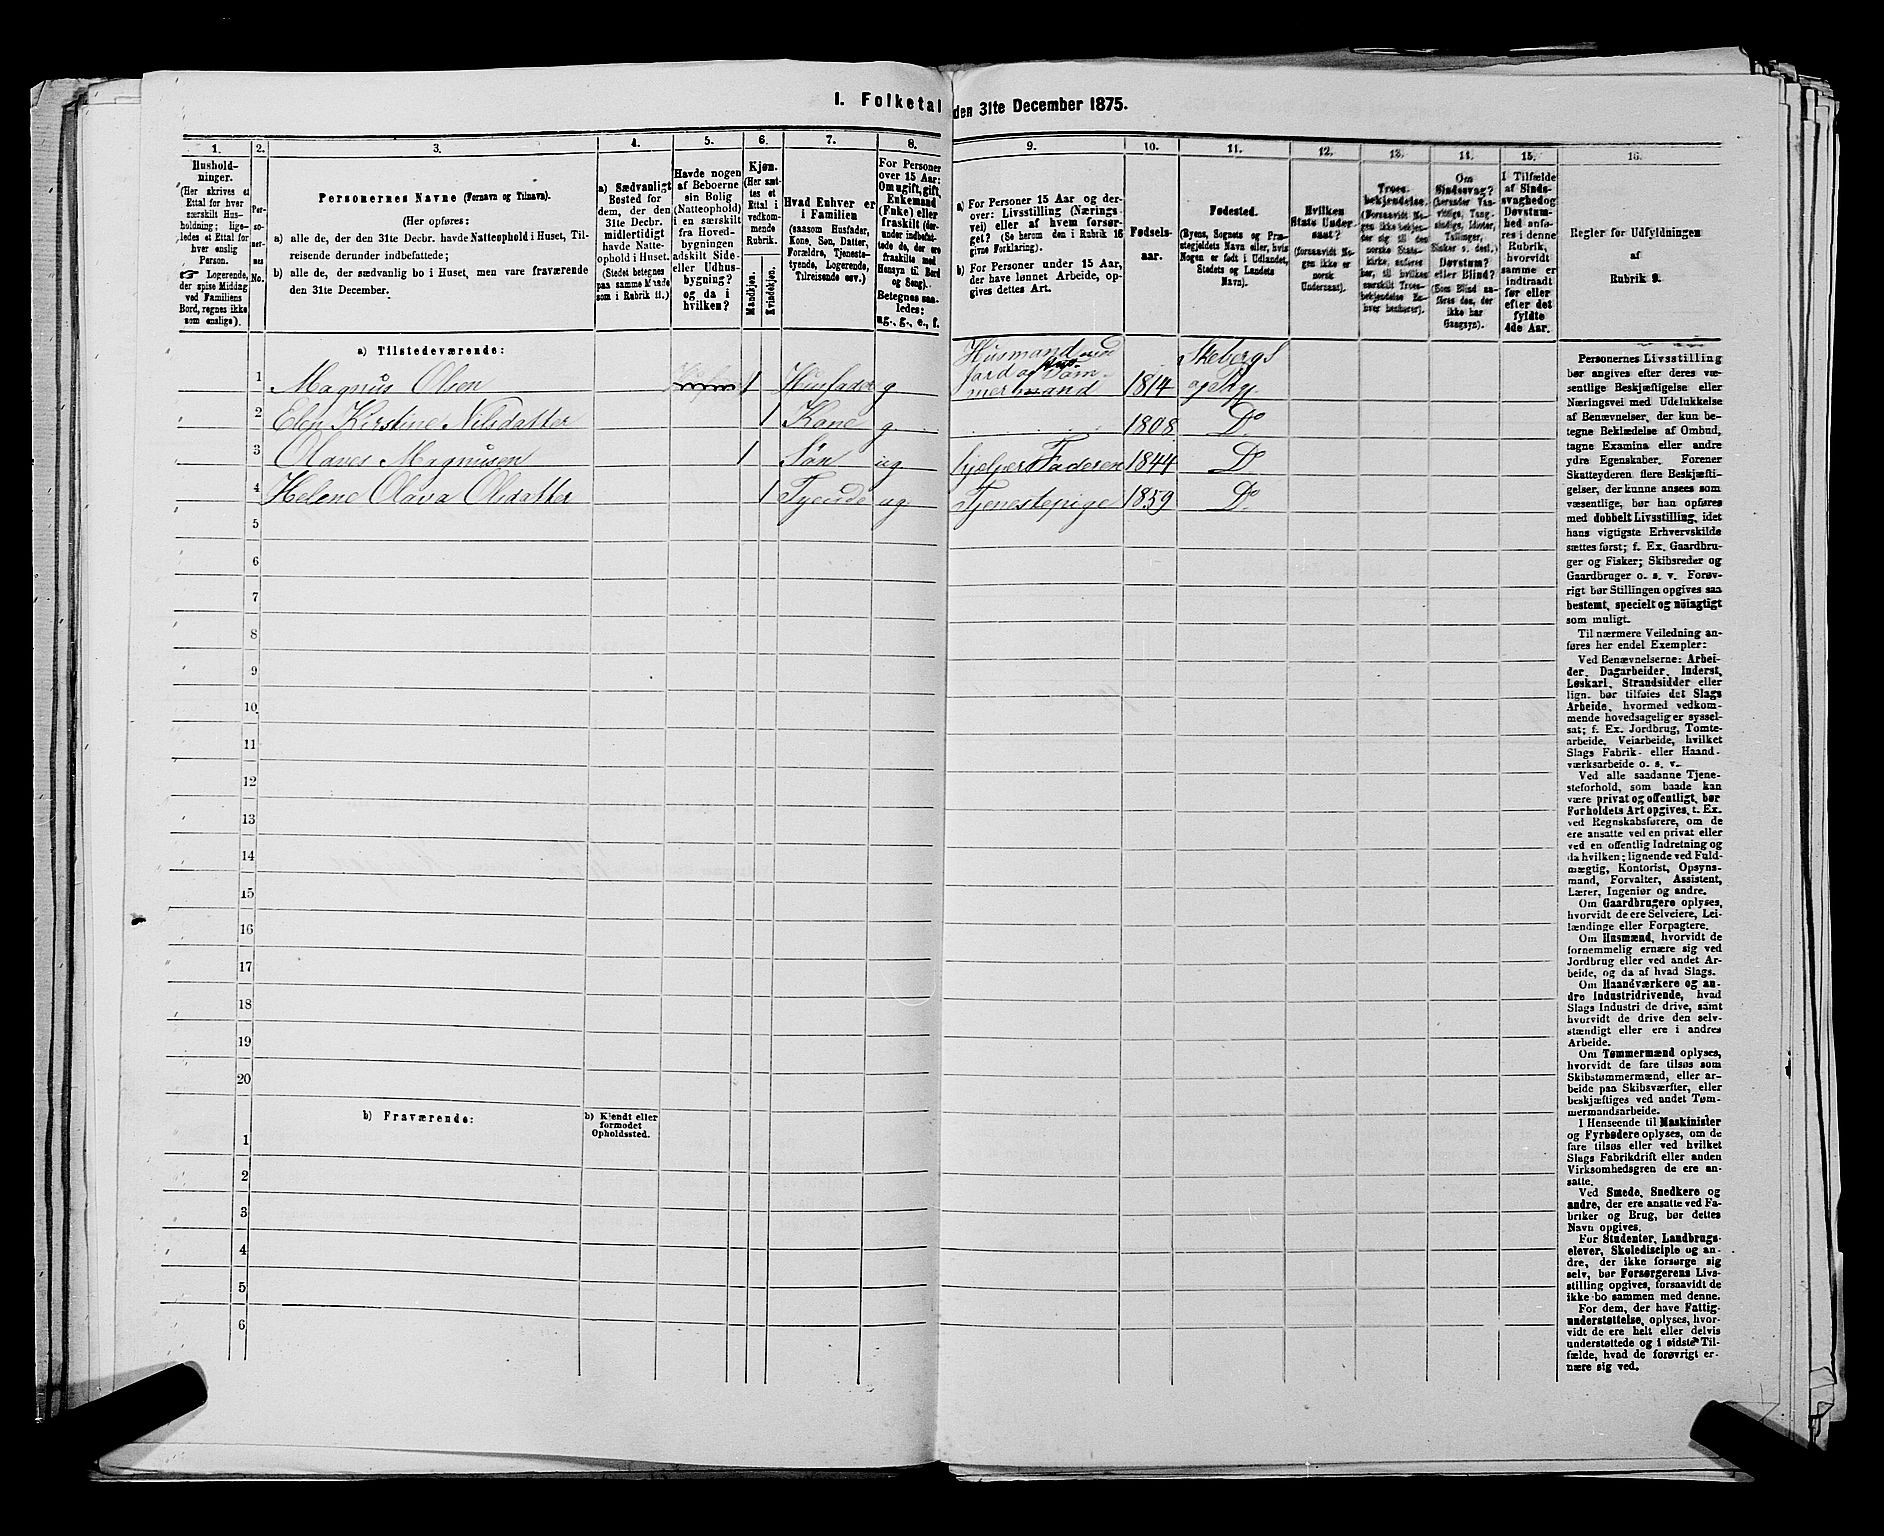 I. Folketal den 31te December 1875.
1. 2. 3. 4. 5. 6. 7. 8. 9. 10. 11. 12. 13. 14. 15. 16.
Hushold-
ninger.
(Her skrives et
Ettal for hver
særskilt Hus-
holdning; lige-
ledes et Ettal for
hver enslig
Person.
☞ Logerende,
der spise Middag
ved Familiens
Bord, regnes ikke
som enslige).
Per-
so-
ner-
nes
No.
Personernes Navne (Fornavn og Tilnavn).
(Her opføres:
a) alle de, der den 31te Decbr. havde Natteophold i Huset, Til-
reisende derunder indbefattede;
b) alle de, der sædvanlig bo i Huset, men vare fraværende
den 31te December.
a) Sædvanligt
Bosted for
dem, der den
31te Decbr.
midlertidigt
havde Natte-
ophold i Huset.
(Stedet betegnes
paa samme Maade
som i Rubrik 11.)
Havde nogen
af Beboerne
sin Bolig
(Natteophold)
i en særskilt
fra Hoved-
bygningen
adskilt Side-
eller Udhus-
bygning?
og da i
hvilken?
Kjøn.
(Her sæt-
tes et
Ettal i
vedkom-
mende
Rubrik.
Mandkjøn.
Kvindekjøn.
Hvad Enhver er
i Familien
(saasom Husfader,
Kone, Søn, Datter,
Forældre, Tjeneste-
tyende, Logerende,
Tilreisende osv.)
For Personer
over 15 Aar:
Om ugift, gift,
Enkemand
(Enke) eller
fraskilt (der-
under indbefat-
tede de, der ere
fraskilte med
Hensyn til Bord
og Seng).
Betegnes saa-
ledes:
ug., g., e., f.
a) For Personer 15 Aar og der-
over: Livsstilling (Nærings-
vei) eller af hvem forsør-
get? (Se herom den i Rubrik 16
givne Forklaring).
b) For Personer under 15 Aar,
der have lønnet Arbeide, op-
gives dettes Art.
Fødsels-
aar.
Fødested.
(Byens, Sognets og Præ-
stegjeldets Navn eller, hvis
Nogen er født i Udlandet,
Stedets og Landets
Navn).
Hvilken
Stats Under-
saat?
(forsaavidt No-
gen ikke er
norsk
Undersaat).
Troes-
bekjendelse.
(Forsaavidt No-
gen ikke bekjen-
der sig til den
norske Stats-
kirke, anføres
her, til hvilken
særskilt Troes-
bekjendelse En-
hver henhører).
Om
Sindssvag?
(herunder Van-
vittige, Tung-
sindige, Idioter,
Tullinger,
Sinker o. desl.)
Døvstum?
eller Blind?
(Som Blind an-
føres den, der
ikke har
Gangsyn).
I Tilfælde
af Sinds-
svaghed og
Døvstum-
hed anfø-
res i denne
Rubrik,
hvorvidt
samme er
indtraadt
før eller
efter det
fyldte
4de Aar.
Regler for Udfyldningen
af
Rubrik 9.
a) Tilstedeværende:
1 Magnus Olsen 1 Husfader g Husmand med Jord og Tømmermand 1814 Skebergs
2 Elen Kirstine Nilsdatter 1 Kone g 1808 Do
3 Olaves Magnusen 1 Søn ug hjelper Faderen 1844 Do
4 Helene Olava Olsdatter 1 Tyende ug Tjenestepige 1859 Do
5
6
7
8
9
10
11
12
13
14
15
16
17
18
19
20
b) Fraværende:
b) Kjendt eller
formodet
Opholdssted.
1
2
3
4
5
6
Personernes Livsstilling
bør angives efter deres væ-
sentlige Beskjæftigelse eller
Næringsvei med Udelukkelse
af Benævnelser, der kun be-
tegne Beklædelse af Ombud,
tagne Examina eller andre
ydre Egenskaber. Forener
Skatteyderen flere Beskjæfti-
gelser, der kunne ansees som
væsentlige, bør han opføres
med dobbelt Livsstilling, idet
hans vigtigste Erhvervskilde
sættes først; f. Ex. Gaardbru-
ger og Fisker; Skibsreder og
Gaardbruger o. s. v. Forøv-
rigt bør Stillingen opgives saa
bestemt, specielt og nöiagtigt
som muligt.
Til nærmere Veiledning an-
føres her endel Exempler:
Ved Benævnelserne: Arbei-
der, Dagarbeider, Inderst,
Løskarl, Strandsidder eller
lign. bør tilføies det Slags
Arbeide, hvormed vedkom-
mende hovedsagelig er syssel-
sat; f. Ex. Jordbrug, Tomte-
arbeide, Veiarbeide, hvilket
Slags Fabrik- eller Haand-
værksarbeide o. s. v.
Ved alle saadanne Tjene-
steforhold, som baade kan
være privat og offentligt, bør
Forholdets Art opgives, t. Ex.
ved Regnskabsførere, om de
ere ansatte ved en privat eller
ved en offentlig Indretning og
da hvilken; lignende ved Fuld-
mægtig, Kontorist, Opsyns-
mand, Forvalter, Assistent,
Lærer, Ingeniør og andre.
Om Gaardbrugere oplyses,
hvorvidt de ere Selveiere, Lei-
lændinge eller Forpagtere.
Om Husmænd, hvorvidt de
fornemmelig ernære sig ved
Jordbrug eller ved andet Ar-
beide, og da af hvad Slags.
Om Haandværkere og an-
dre Industridrivende, hvad
Slags Industri de drive, samt
hvorvidt de drive den selv-
stændigt eller ere i andres
Arbeide.
Om Tømmermænd oplyses,
hvorvidt de fare tilsøs som
Skibstømmermænd, eller ar-
beide paa Skibsværfter, eller
beskjæftiges ved andet Tøm-
mermandsarbeide.
I Henseende til Maskinister
og Fyrbødere oplyses, om de
fare tilsøs eller ved hvilket
Slags Fabrikdrift eller anden
Virksomhedsgren de ere an-
satte.
Ved Smede, Snedkere og
andre, der ere ansatte ved Fa-
briker og Brug, bør dettes
Navn opgives.
For Studenter, Landbrugs-
elever, Skoledisciple og an-
dre, der ikke forsørge sig
selv, bør Forsørgerens Livs-
stilling opgives, forsaavidt de
ikke bo sammen med denne.
For dem, der have Fattig-
understøttelse, oplyses, hvor-
vidt de ere helt eller delvis
understøttede og i sidste Til-
fælde, hvad de forøvrigt er-
nære sig ved.